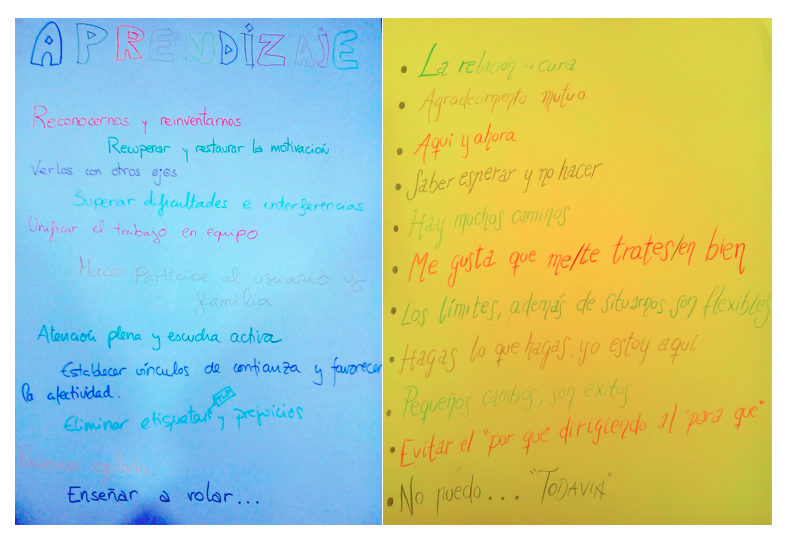 APRENDIZAJE
Reconocernos y reinventarnos
Recuperar y restaurar la motivación
Verlas con otros ojos
Superar dificultades e interferencias
Unificar el trabajo en equipo
Hacer Participe al usuario y
familia
Atención plena y escucha activa
Establecer vínculos de confianza y favorecer
la afectividad.
Eliminar etiquetas y prejuicios
Enseñar a volar...
• La relación → cura
• Agradecimiento mutuo
• Aquí y ahora
• Saber esperar y no hacer
• Hay muchos caminos
• Me gusta que me/te trates/en bien
• Los límites, además de situarnos son flexibles
• Hagas lo que hagas, yo estoy aquí
• Pequeños cambios, son éxitos
• Evitar el "por qué" dirigiendo al "para qué"
• No puedo... "TODAVIA"